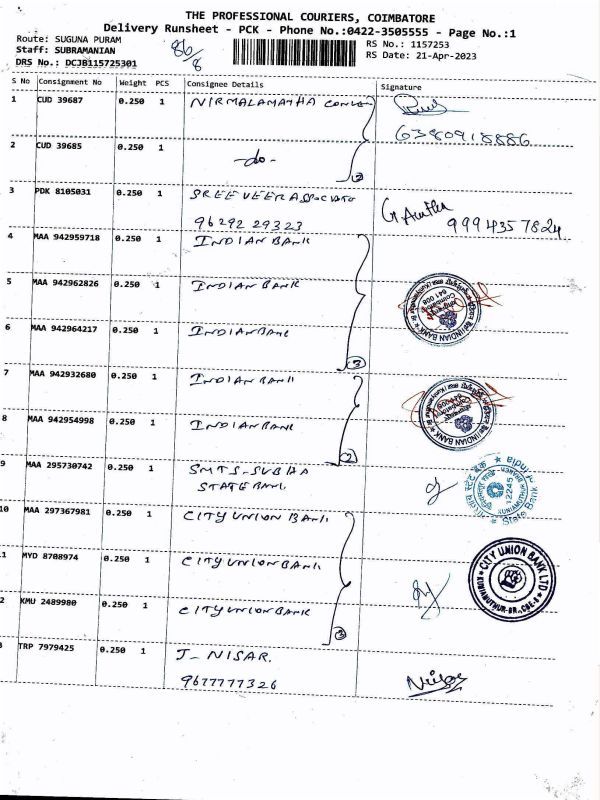 THE PROFESSIONAL COURIERS, COIMBATORE
Delivery Runsheet - PCK - Phone No.:0422-3505555 - Page No.:1
Route: SUGUNA PURAM
Staff: SUBRAMANIAN
DRS No.: DCJB115725301
86/8
RS No.: 1157253
RS Date: 21-Apr-2023
S No Consignment No Weight PCS Consignee Details Signature
1 CUD 39687 0.250 1 NIRMALAMATHA
6380918886
2 CUD 39685 0.250 1 -do- 2
3 PDK 8105031 0.250 1 SREE VEER ASSOCIATE
96292 29323
9994357824
4 MAA 942959718 0.250 1 INDIAN BANK
5 MAA 942962826 0.250 1 INDIAN BANK
6 MAA 942964217 0.250 1 INDIAN BANK 3
7 MAA 942932680 0.250 1 INDIAN BANK
8 MAA 942954998 0.250 1 INDIAN BANK 2
9 MAA 295730742 0.250 1 SMTS-SUBHA
STATE BANK
State Bank of India
12245
10 MAA 297367981 0.250 1 CITY UNION BANK
1 MYD 8708974 0.250 1 CITY UNION BANK
2 KMU 2489980 0.250 1 CITY UNION BANK 3
CITY UNION BANK LTD
KUNIAMUTHUR-BR., CBE-8
TRP 7979425 0.250 1 J- NISAR.
9677777326